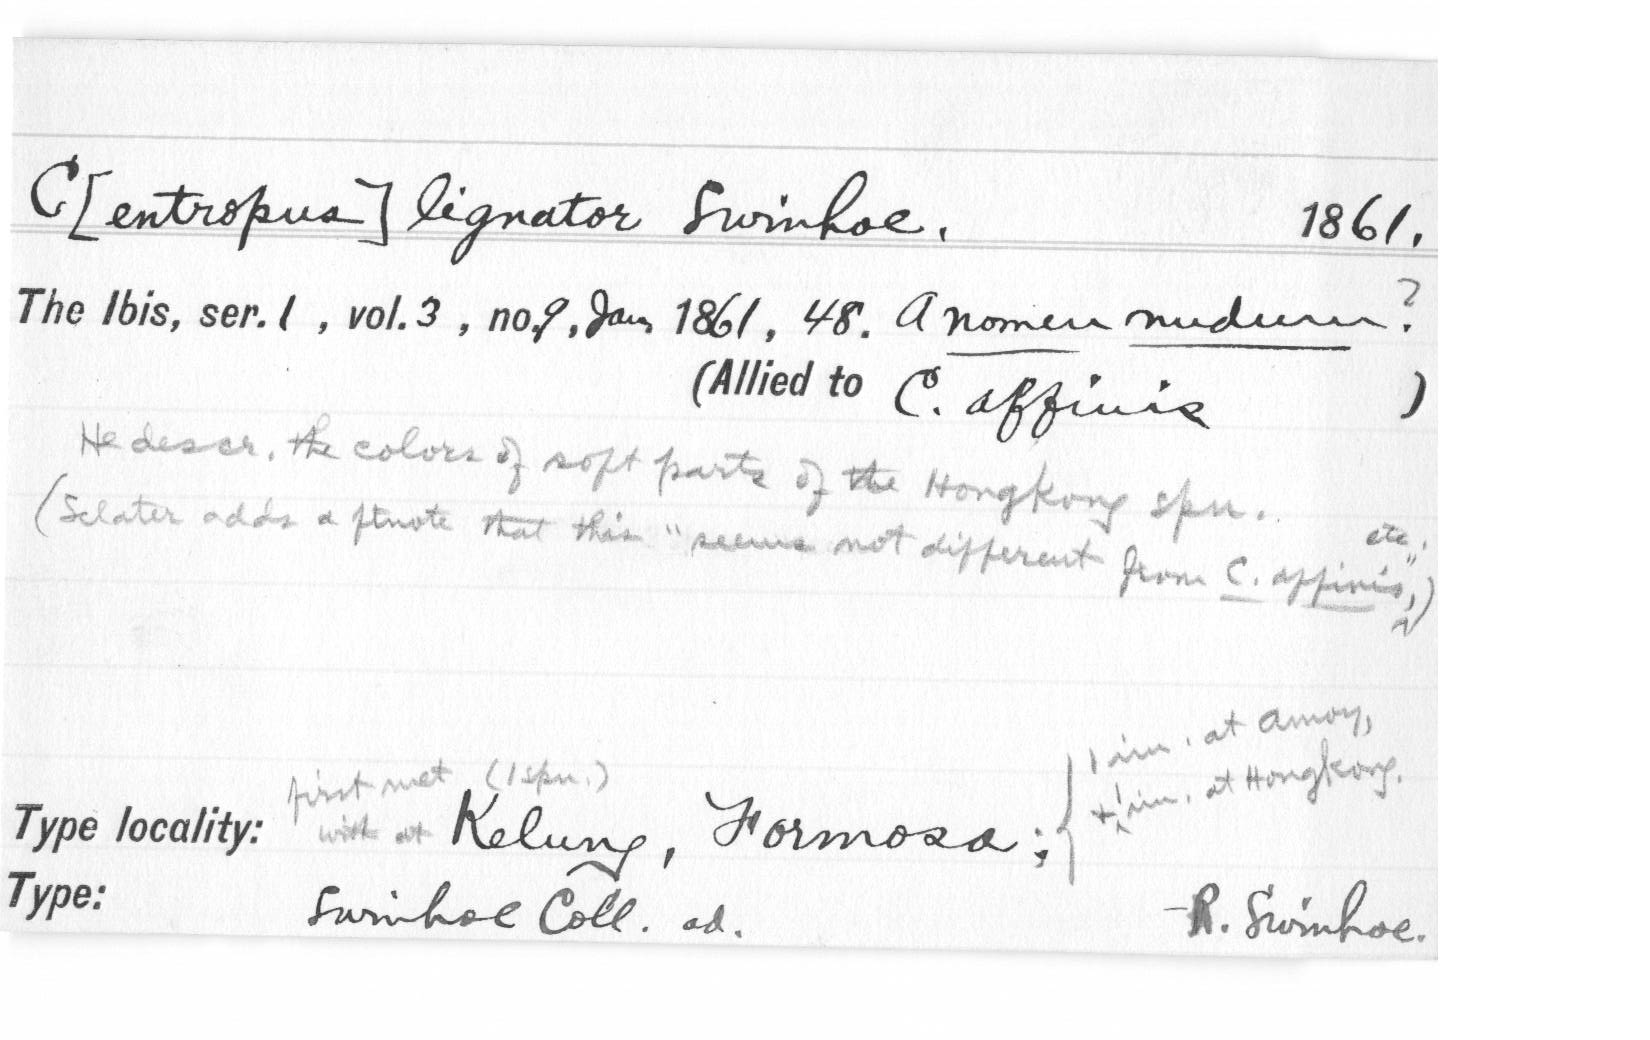 C[entropus] lignator Swinhoe. 1861.
The Ibis, ser. 1 , vol. 3 , no. 9, Jan. 1861, 48. A nomen nudum?
(Allied to C. affinis )
He descr. the colors of soft parts of the Hongkong spn.
(Sclater adds a ftnote that this "seems not different from C. affinis," etc.)
first met (1 spn.)
with at
Type locality: Kelung, Formosa; { 1 im. at Amoy,
+ 1 im. at Hongkong.
Type: Swinhoe Coll. ad. —R. Swinhoe.